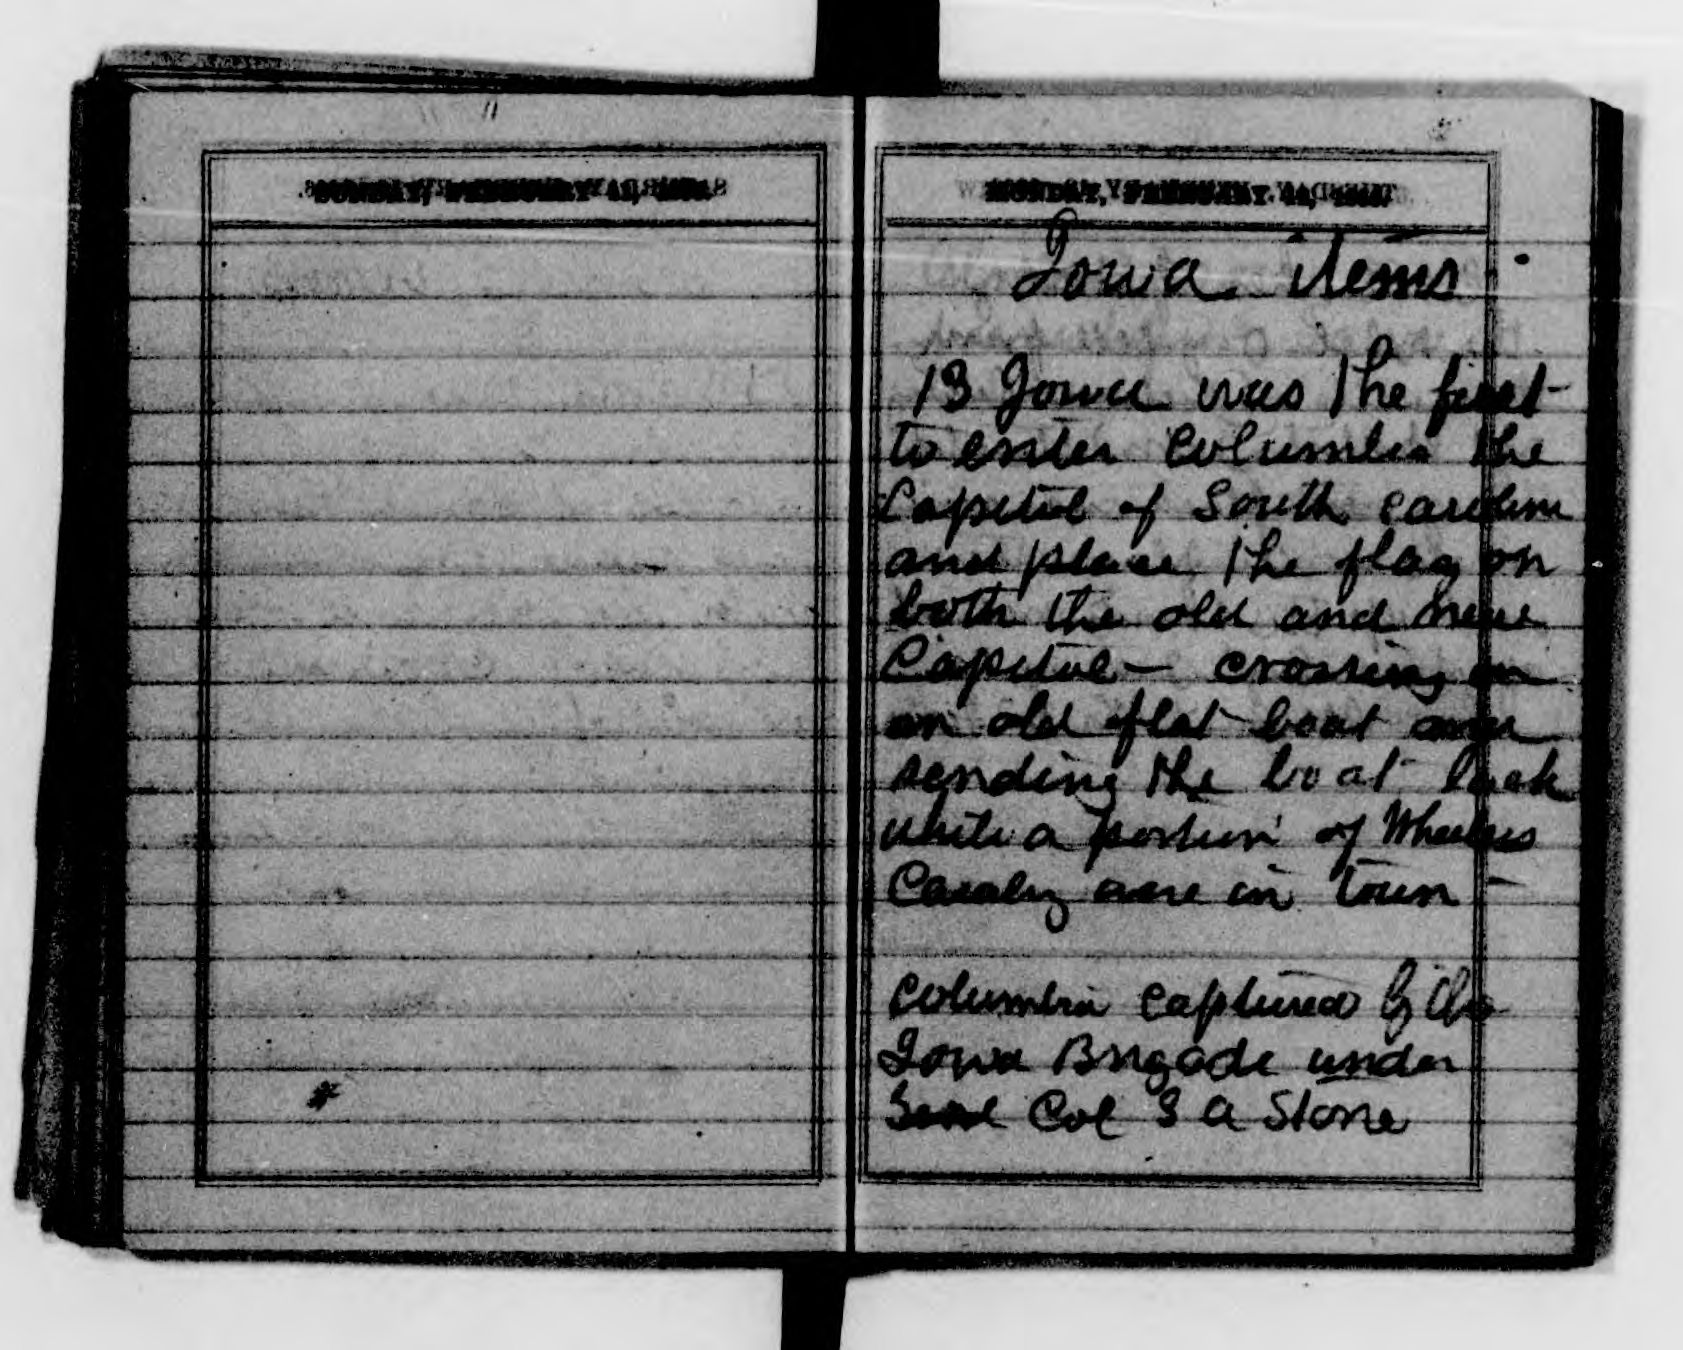 Iowa items
13 Iowa was the first
to enter Columbia the
Capitol of South Carolina
and place the flag on
both the old and new
Capitol — crossing on
an old flat boat over
sending the boat back
while a portion of Wheelers
Cavalry were in town —
Columbia captured by the
Iowa Brigade under
Col G A Stone